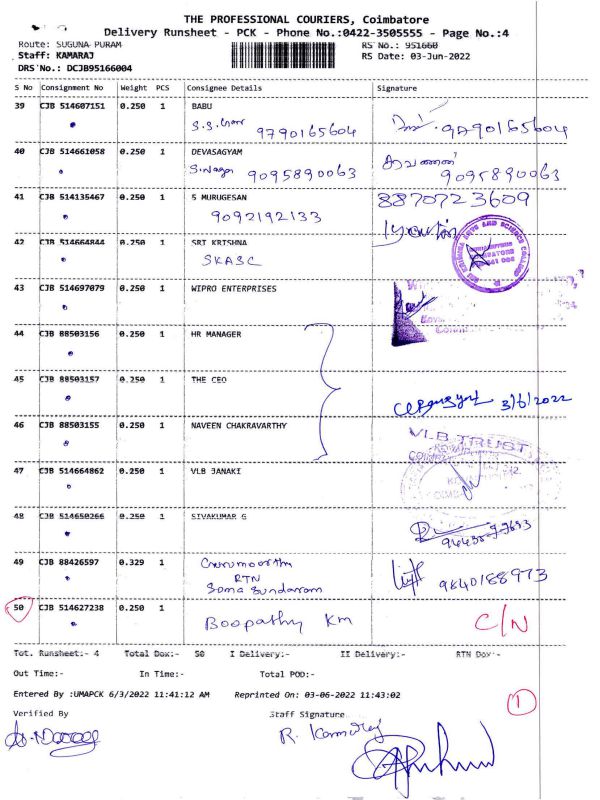 THE PROFESSIONAL COURIERS, Coimbatore
Delivery Runsheet - PCK - Phone No.:0422-3505555 - Page No.:4
Route: SUGUNA PURAM RS No.: 951660
Staff: KAMARAJ RS Date: 03-Jun-2022
DRS No.: DCJB95166004
S No Consignment No Weight PCS Consignee Details Signature
39 CJB 514607151 0.250 1 BABU
9790165604 9790165604
40 CJB 514661058 0.250 1 DEVASAGYAM
9095890063 9095890063
41 CJB 514135467 0.250 1 S MURUGESAN 8870723609
9092192133
42 CJB 514664844 0.250 1 SRI KRISHNA
SKASC
43 CJB 514697079 0.250 1 WIPRO ENTERPRISES
44 CJB 88503156 0.250 1 HR MANAGER
45 CJB 88503157 0.250 1 THE CEO
3/6/2022
46 CJB 88503155 0.250 1 NAVEEN CHAKRAVARTHY
VLB TRUST
47 CJB 514664862 0.250 1 VLB JANAKI
48 CJB 514650266 0.250 1 SIVAKUMAR G
49 CJB 88426597 0.329 1 Gurumoorthi
RTN
Soma Sundaram 9840188973
50 CJB 514627238 0.250 1 Boopathy KM C/N
Tot. Runsheet:- 4 Total Dox:- 50 I Delivery:- II Delivery:- RTN Dox:-
Out Time:- In Time:- Total POD:-
Entered By :UMAPCK 6/3/2022 11:41:12 AM Reprinted On: 03-06-2022 11:43:02
1
Verified By Staff Signature
R. Kamaraj